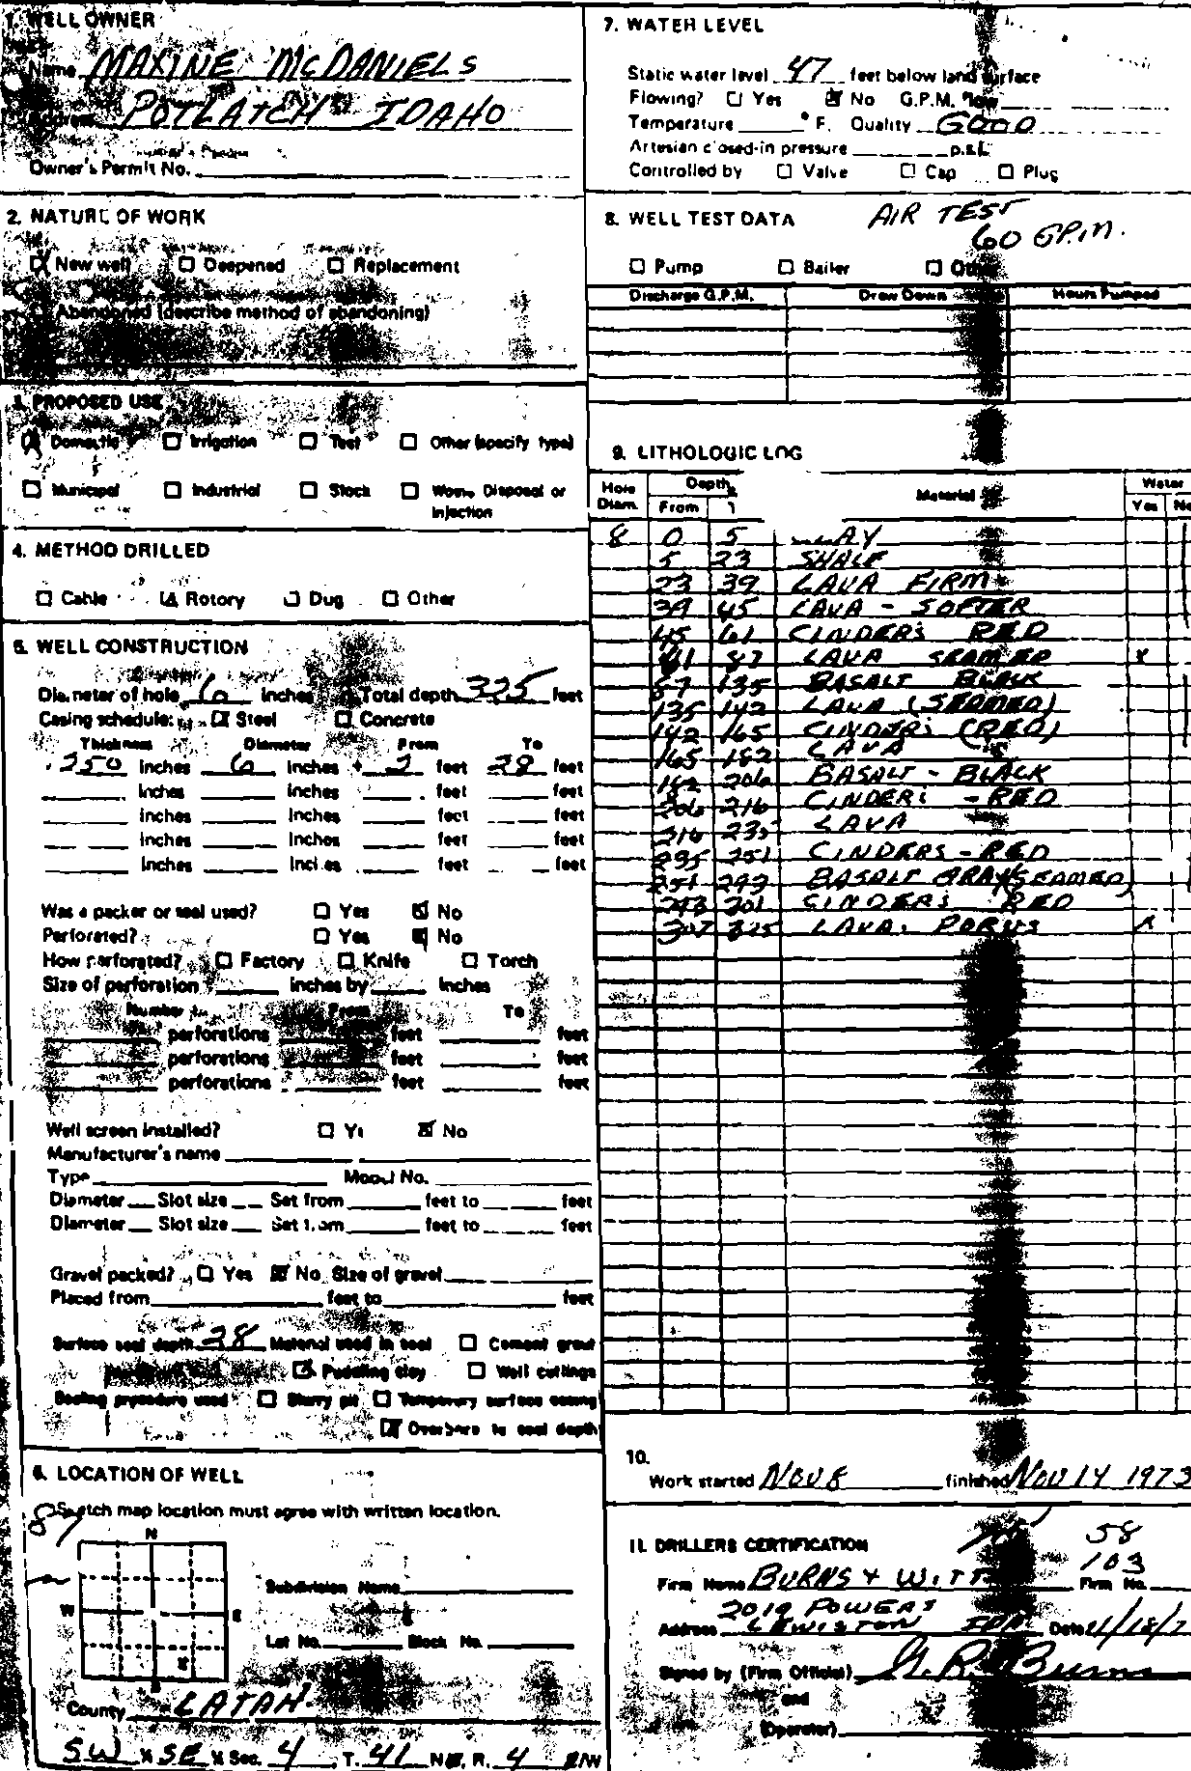 1. WELL OWNER
Name MAXINE McDANIELS
Address POTLATCH IDAHO
Owner's Permit No.
2. NATURE OF WORK
New well Deepened Replacement
Abandoned (describe method of abandoning)
3. PROPOSED USE
Domestic Irrigation Test Other (specify type)
Municipal Industrial Stock Waste Disposal or
Injection
4. METHOD DRILLED
Cable Rotary Dug Other
5. WELL CONSTRUCTION
Diameter of hole 6 inches Total depth 325 feet
Casing schedule: Steel Concrete
Thickness Diameter From To
.250 inches 6 inches + 2 feet 28 feet
inches inches feet feet
inches inches feet feet
inches inches feet feet
inches inches feet feet
Was a packer or seal used? Yes No
Perforated? Yes No
How perforated? Factory Knife Torch
Size of perforation inches by inches
Number From To
perforations feet feet
perforations feet feet
perforations feet feet
Well screen installed? No
Manufacturer's name
Type Model No.
Diameter Slot size Set from feet to feet
Diameter Slot size Set from feet to feet
Gravel packed? Yes No Size of gravel
Placed from feet to feet
Surface seal depth 28 Material used in seal Cement grout
Puddling clay Well cuttings
Sealing procedure used Slurry pit Temporary surface casing
Overbore to seal depth
6. LOCATION OF WELL
Sketch map location must agree with written location.
N
W E
X
S
Subdivision Name
Lot No. Block No.
County LATAH
SW ¼ SE ¼ Sec. 4 T. 41 N/S, R. 4 E/W
7. WATER LEVEL
Static water level 47 feet below land surface
Flowing? Yes No G.P.M. flow
Temperature ° F. Quality GOOD
Artesian closed-in pressure p.s.i.
Controlled by Valve Cap Plug
8. WELL TEST DATA AIR TEST
60 G.P.M.
Pump Bailer Other
Discharge G.P.M. Draw Down Hours Pumped
9. LITHOLOGIC LOG
Hole Depth Material Water
Diam. From Yes No
8 0 5 CLAY
5 23 SHALE
23 39 LAVA FIRM
39 45 LAVA - SOFTER
45 61 CINDERS RED
61 87 LAVA SEAMED X
87 135 BASALT BLACK
135 142 LAVA (SEAMED)
142 165 CINDERS (RED)
165 182 LAVA
182 206 BASALT - BLACK
206 216 CINDERS - RED
216 235 LAVA
235 251 CINDERS - RED
251 293 BASALT GRAY (SEAMED)
293 CINDERS RED
307 325 LAVA. PORUS X
10.
Work started NOV 8 finished NOV 14 1973
11. DRILLERS CERTIFICATION
58
103
Firm Name BURNS & WITT Firm No.
2019 POWERS
Address LEWISTON IDA Date
Signed by (Firm Official) G. R. Burns
and
(Operator)